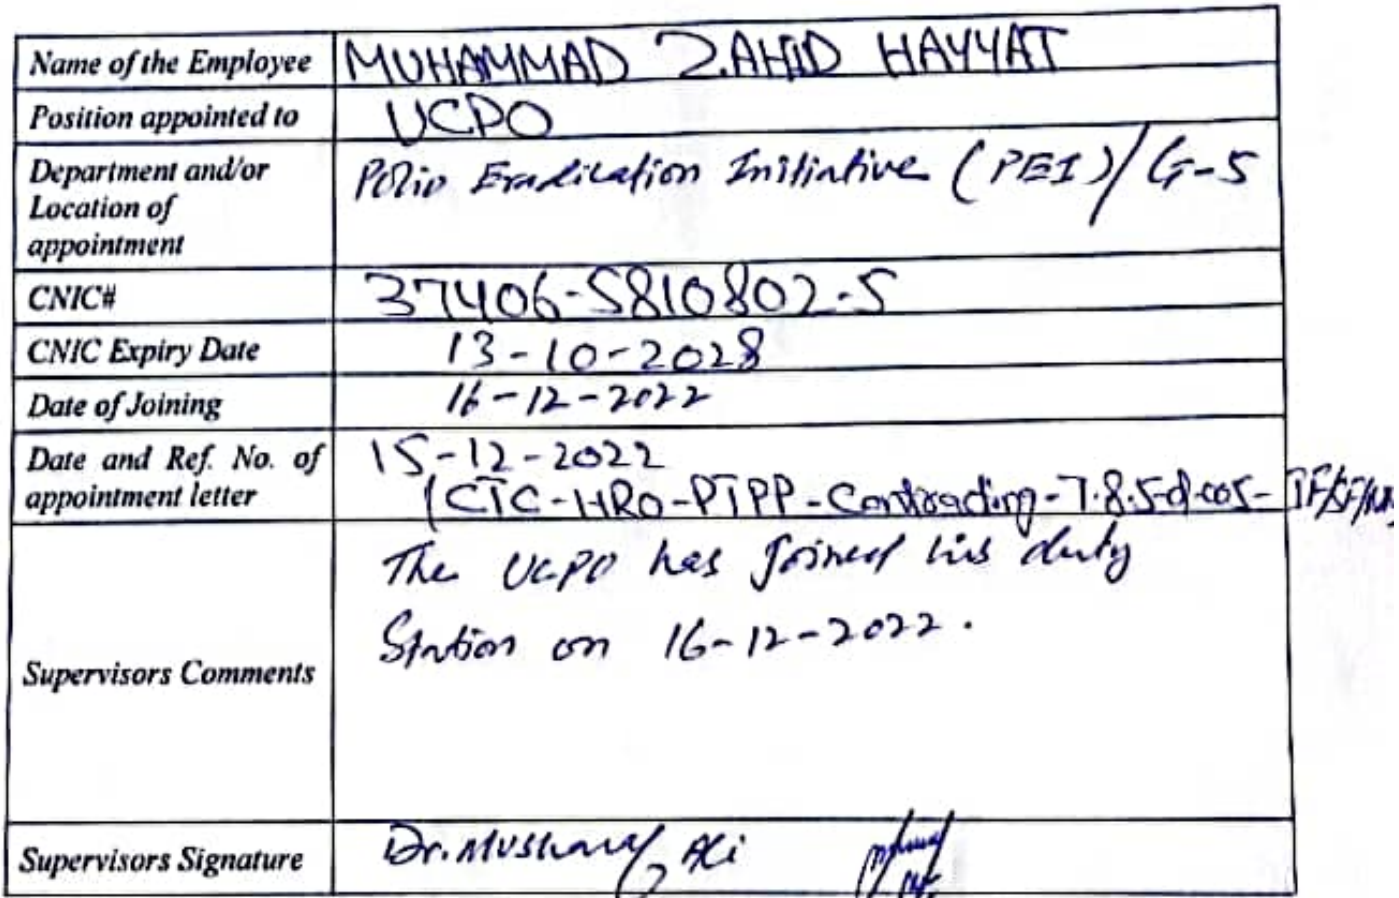 Name of the Employee MUHAMMAD ZAHID HAYYAT
Position appointed to UCPO
Department and/or
Location of
appointment
Polio Eradication Initiative (PEI)/ G-5
CNIC# 37406-5810802-5
CNIC Expiry Date 13-10-2028
Date of Joining 16-12-2022
Date and Ref. No. of
appointment letter
15-12-2022
(CTC-HRO-PTPP-Contracting-7.8.5-
The UCPO has Joined his duty
Station on 16-12-2022.
Supervisors Comments
Supervisors Signature Dr. Musharaf Ali